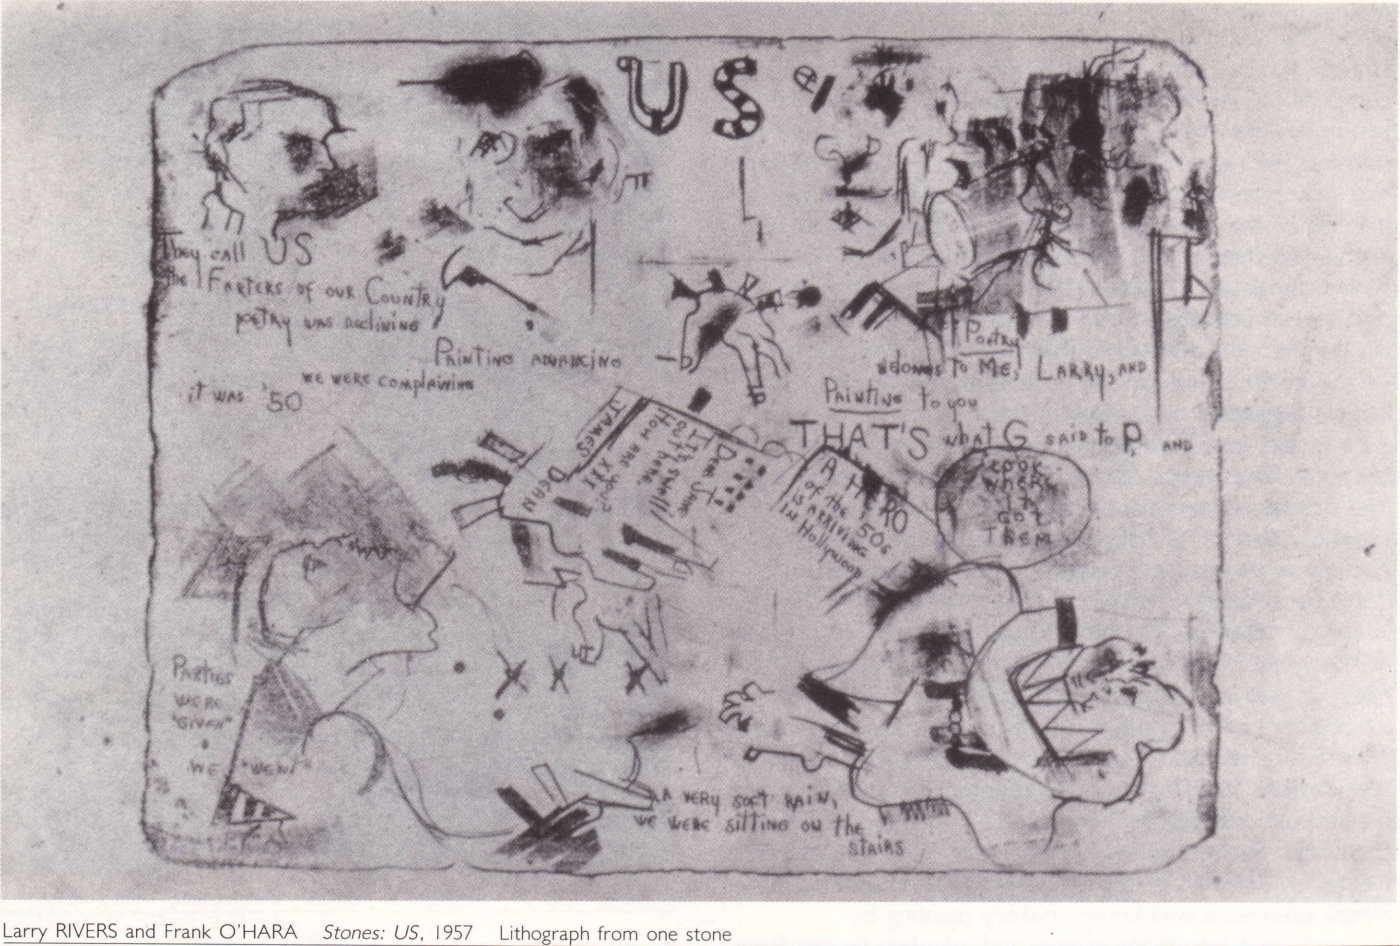 US
They call US
the FARTERS OF OUR COUNTRY
poetry was declining
PAINTING ADVANCING
we were complaining
it was '50
Poetry
belongs to ME, LARRY, AND
PAINTING to you
THAT'S what G said to P. AND
LOOK
where
it
GOT
THEM
JAMES
DEAN
XII
HOW ARE
you?
IT'S swell
out here.
Dear Jane
A HERO
of the '50s
IS ARRIVING
IN Hollywood
PARTIES
WERE
"GIVEN"
WE "WENT"
A very soft RAIN,
we were sitting on the
stairs
Larry RIVERS and Frank O'HARA Stones: US, 1957 Lithograph from one stone